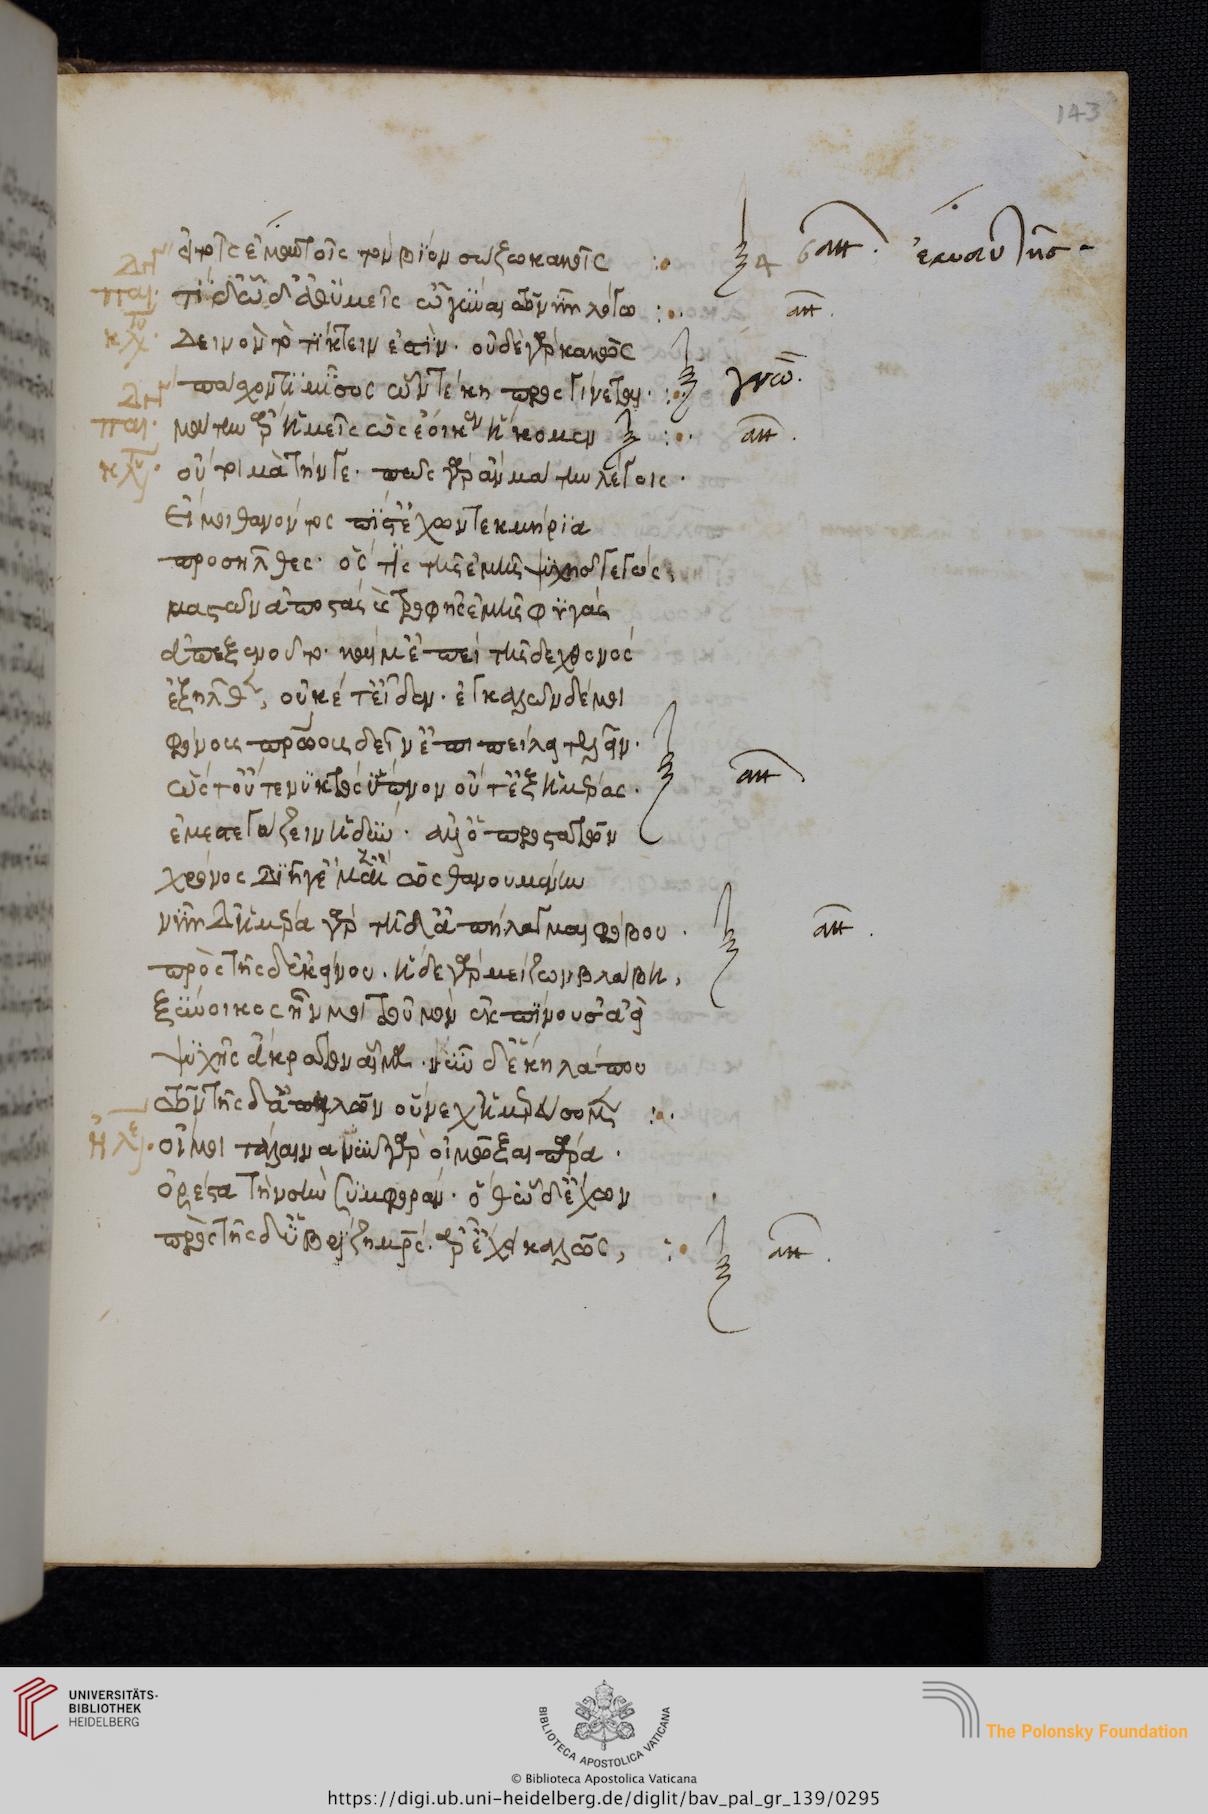 143
εἰ τοῖς ἐμαυτοῖς τὸν βίον σώζω κακοῖς
τί δ' ὧδ' ἀθυμεῖς ὦ γύναι τῷ νῦν λόγω
Δεινὸν τὸ τίκτειν ἐστὶν· οὐδὲ γὰρ κακῶς
πάσχοντι μῖσος ὧν τέκη προσγίνεται·
μάτην ἄρ' ἡμεῖς ὡς ἔοικεν ἥκομεν
οὔτοι μάτην γε· πῶς γὰρ ἂν μάτην λέγοις·
Εἴ μοι θανόντος πίστ' ἔχων τεκμήρια
προσῆλθες· ὅς τίς τῆς ἐμῆς ψυχῆς γεγώς,
μαστῶν ἀποστὰς καὶ τροφῆς ἐμῆς φυγὰς
ἀπεξενοῦτο· καί μ' ἐπεὶ τῆσδε χθονός
ἐξῆλθεν, οὐκέτ' εἶδεν· ἐγκαλῶν δέ μοι
φόνους πατρώους δείν' ἐπιπείλει τελεῖν·
ὥς τ' οὔτε νυκτὸς ὕπνον οὔτ' ἐξ ἡμέρας·
ἐμὲ στεγάζειν ἡδὺν· ἀλλ' ὁ προστατῶν
χρόνος διῆγέ μ' αἰὲν ὡς θανουμένην
νῦν δ' ἡμέρα γὰρ τῇδ' ἀπήλλαγμαι φόβου·
πρὸς τῆσδ' ἐκείνου· ἥδε γὰρ μείζων βλάβη,
ξύνοικος ἦν μοι τοὐμὸν ἐκπίνουσ' ἀεὶ
ψυχῆς ἄκρατον αἷμα· νῦν δ' ἕκηλά που
τῶν τῆσδ' ἀπειλῶν οὕνεχ' ἡμερεύσομεν
οἴμοι τάλαινα νῦν γὰρ οἰμῶξαι πάρα·
ὀρέστα τὴν σὴν ξυμφορὰν· ὅθ' ὧδ' ἔχων
πρὸς τῆσδ' ὑβρίζη μητρός· ἆρ' ἔχει καλῶς,
UNIVERSITÄTS-
BIBLIOTHEK
HEIDELBERG
BIBLIOTECA APOSTOLICA VATICANA
The Polonsky Foundation
© Biblioteca Apostolica Vaticana
https://digi.ub.uni-heidelberg.de/diglit/bav_pal_gr_139/0295